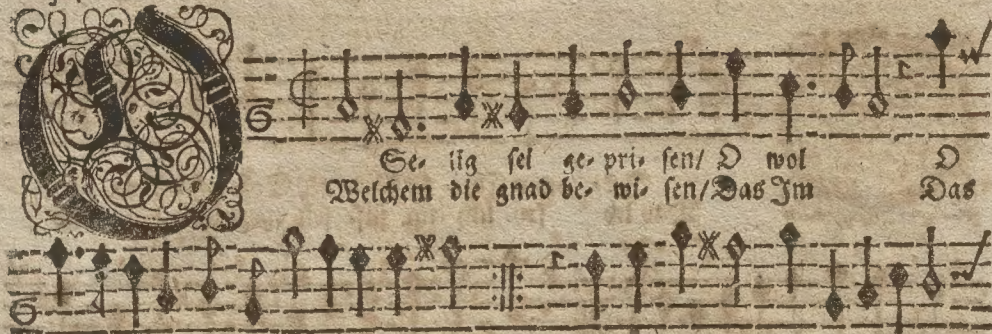 O
Se- lig sel ge- pri- sen/ O wol O
Welchem die gnad be- wi- sen/ Das Im Das